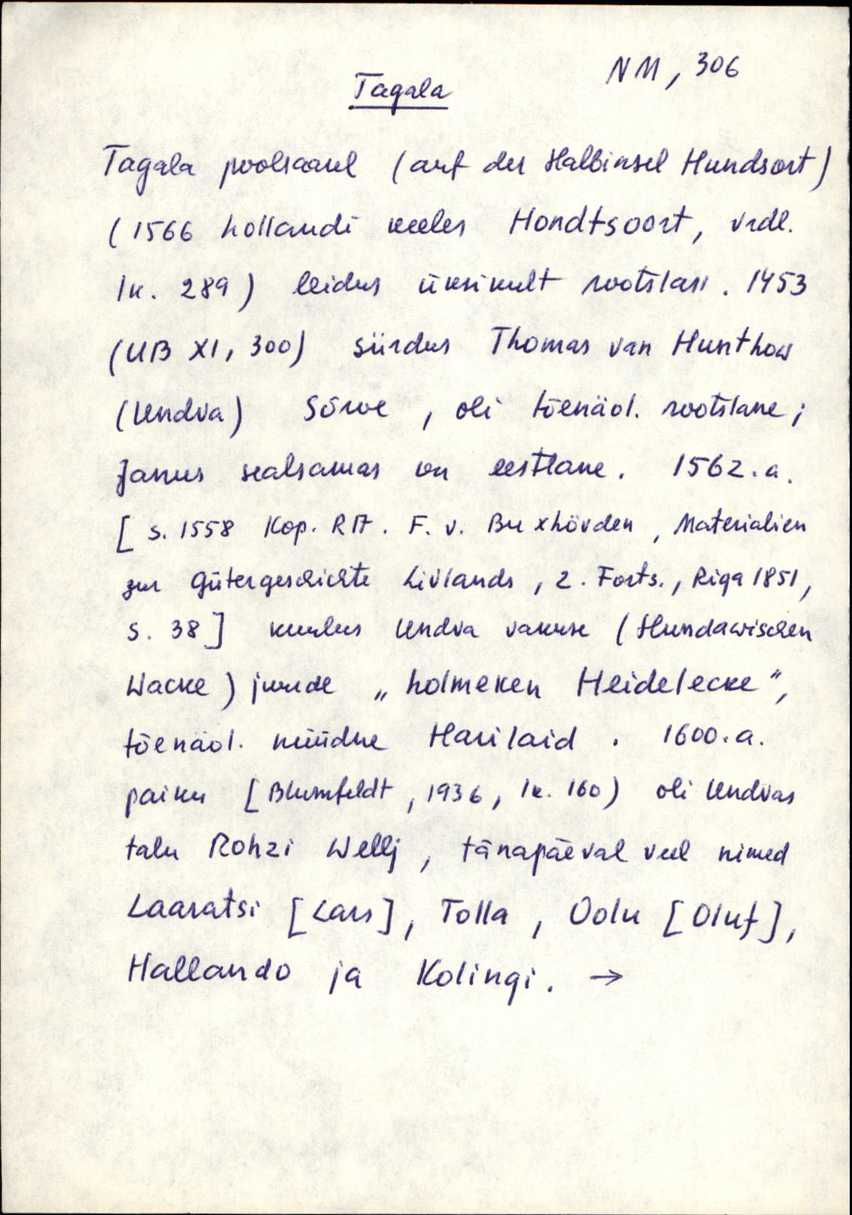 NM, 306
Tagala
Tagala poolsaarel (auf der Halbinsel Hundsort)
(1566 hollandi keeles Hondtsoort, vrdl.
lk. 289) leidus üksikult rootslasi. 1453
(UB XI, 300) siirdus Thomas van Hunthow
(Undva) Sõrve, oli tõenäol. rootslane;
Janus sealsamas on eestlane. 1562.a.
[s. 1558 Kop. RA. F. v. Buxhövden, Materialien
zur Gütergeschichte Livlands, 2. Forts., Riga 1851,
S. 38] kuulus Undva vakuse (Hundawischen
Wacke) juurde „holmeken Heidelecke",
tõenäol. nüüdne Harilaid. 1600.a.
paiku [Blumfeldt, 1936, lk. 160) oli Undvas
talu Rohzi Wellj, tänapäeval veel nimed
Laaratsi [Lars], Tolla, Oolu [Oluf],
Hallando ja Kolingi. →